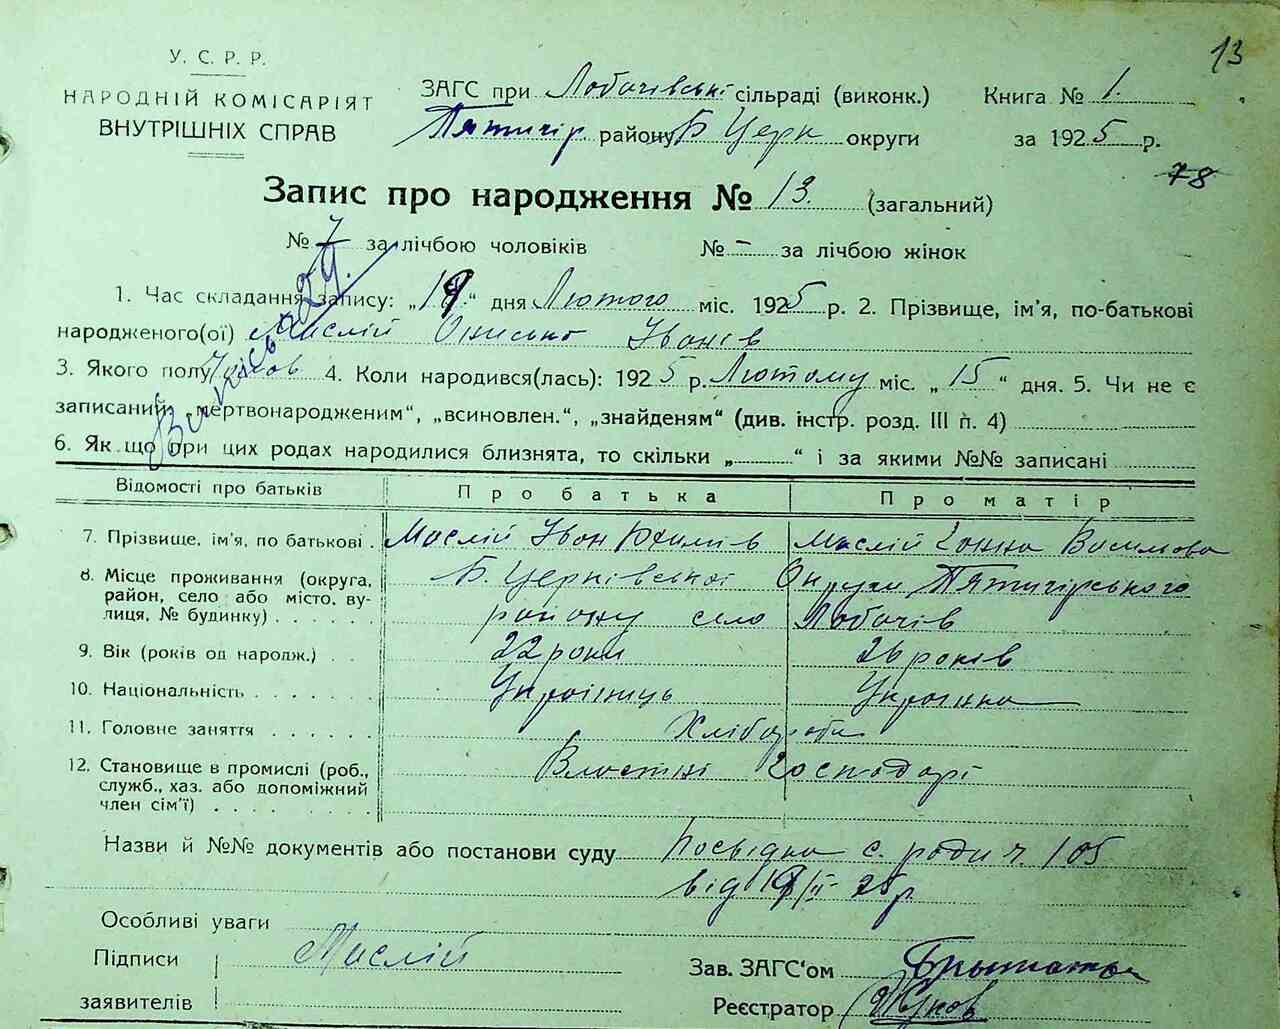 13
У. С. Р. Р.
НАРОДНІЙ КОМІСАРІЯТ
ВНУТРІШНІХ СПРАВ
ЗАГС при Лобачівські сільраді (виконк.) Книга № 1
Пятигір району Б Церк округи за 1925 р.
78
Запис про народження № 13. (загальний)
№ 7 за лічбою чоловіків № – за лічбою жінок
1. Час складання запису: „19“ дня Лютого міс. 1925 р. 2. Прізвище, ім'я, по-батькові
народженого(ої) Маслій Онисько Іванів
3. Якого полу Чолов 4. Коли народився(лась): 1925 р. Лютому міс. „15“ дня. 5. Чи не є
записаний „мертвонародженим“, „всиновлен.“, „знайденям“ (див. інстр. розд. III п. 4)
6. Як що при цих родах народилися близнята, то скільки „ “ і за якими №№ записані
Відомості про батьків Про батька Про матір
7. Прізвище, ім'я, по батькові . Маслій Іван Маслій Ганна Василова
8. Місце проживання (округа, Б. Церківської Округи Пятигірського
район, село або місто, ву-
лиця, № будинку) . . . . . . району село Лобачів
9. Вік (років од народж.) . . 22 роки 26 років
10. Національність . . . . . . Українець Українка
11. Головне заняття . . . . . . Хлібороби
12. Становище в промислі (роб., Власні Господарі
служб., хаз. або допоміжний
член сім'ї) . . . . . .
Назви й №№ документів або постанови суду Посвідка с. ради ч. 105
від 19/II 25 р.
Особливі уваги
Підписи Маслій Зав. ЗАГС'ом
заявителів Реєстратор